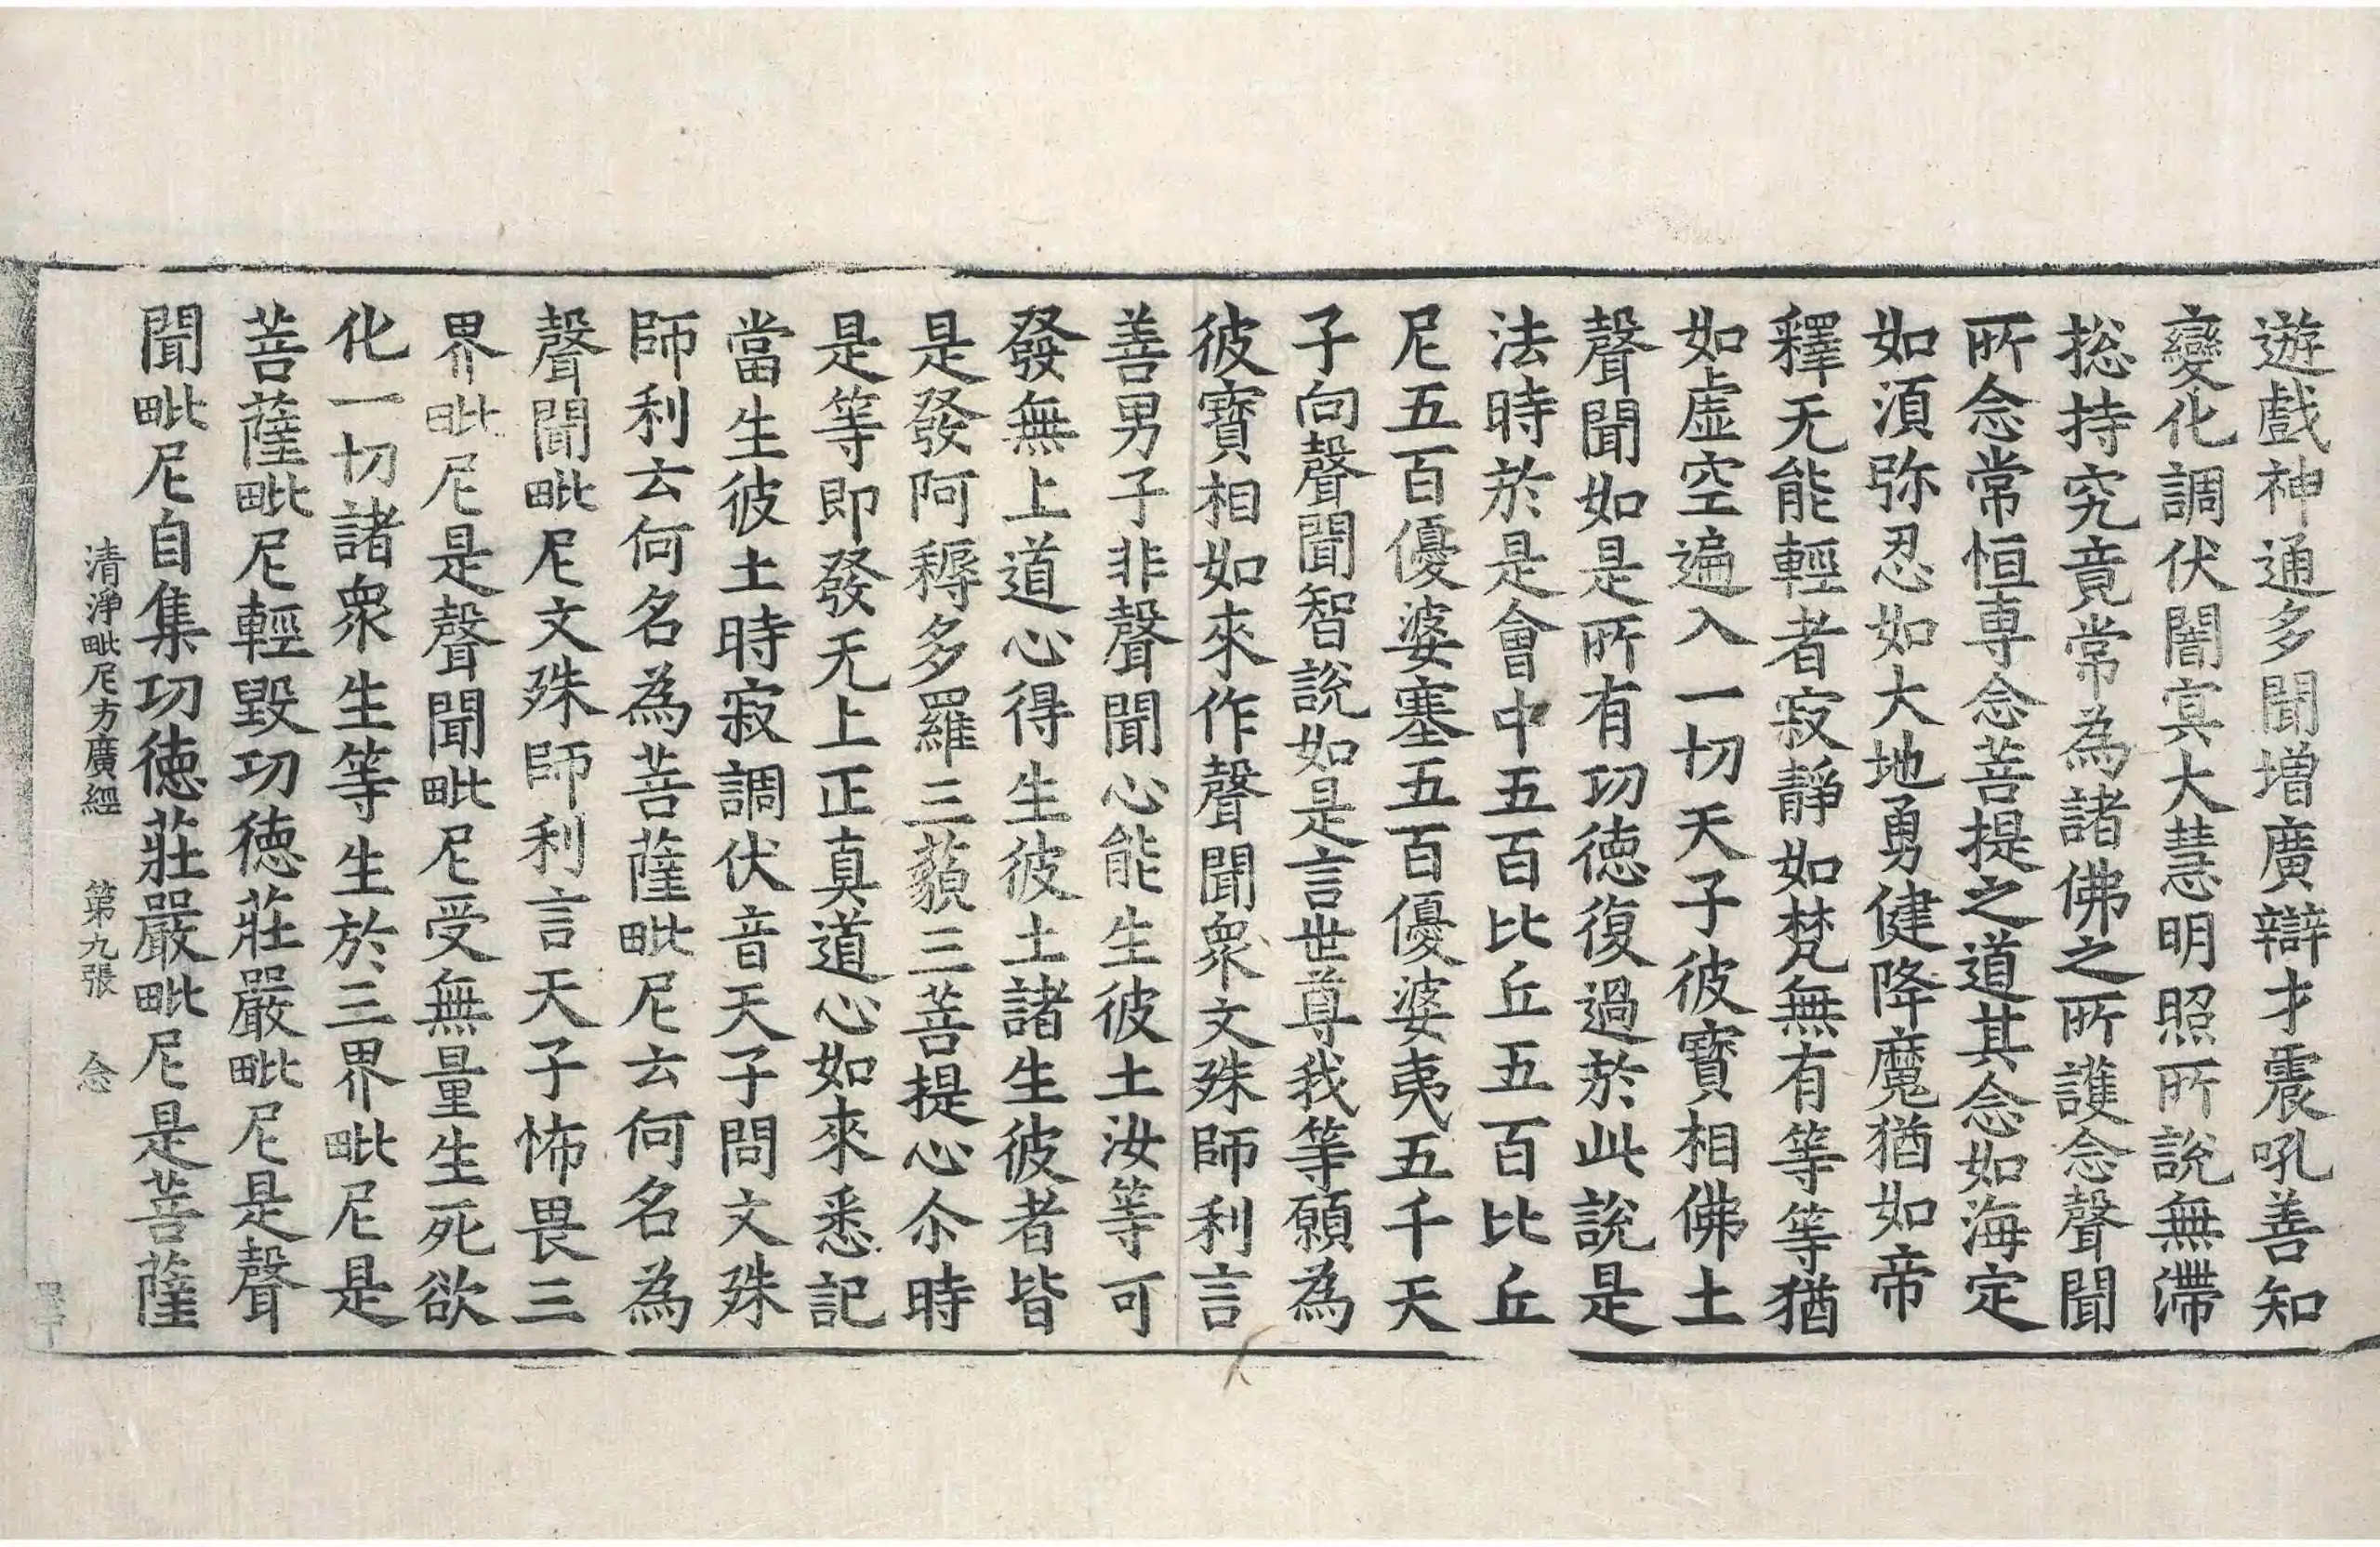 遊戲神通多聞増廣辯才震吼善知
變化調伏闇㝠大慧明照所說無滯
捴持究竟常為諸佛之所護念聲聞
所念常恒専念菩提之道其念如海定
如湏弥忍如大地勇健降魔猶如帝
釋无能輕者寂靜如梵無有等等猶
如虛空遍入一切天子彼寶相佛土
聲聞如是所有功徳復過於此說是
法時於是會中五百比丘五百比丘
尼五百優婆塞五百優婆夷五千天
子向聲聞智說如是言世尊我等願為
彼寶相如來作聲聞衆文殊師利言
善男子非聲聞心能生彼土汝等可
發無上道心得生彼土諸生彼者皆
是發阿耨多羅三藐三菩提心尒時
是等即發无上正真道心如來悉記
當生彼土時寂調伏音天子問文殊
師利云何名為菩薩毗尼云何名為
聲聞毗尼文殊師利言天子怖畏三
界毗尼是聲聞毗尼受無量生死欲
化一切諸衆生等生於三界毗尼是
菩薩毗尼輕毀功徳莊嚴毗尼是聲
聞毗尼自集功徳莊嚴毗尼是菩薩
清淨毗尼方廣經 第九張 念